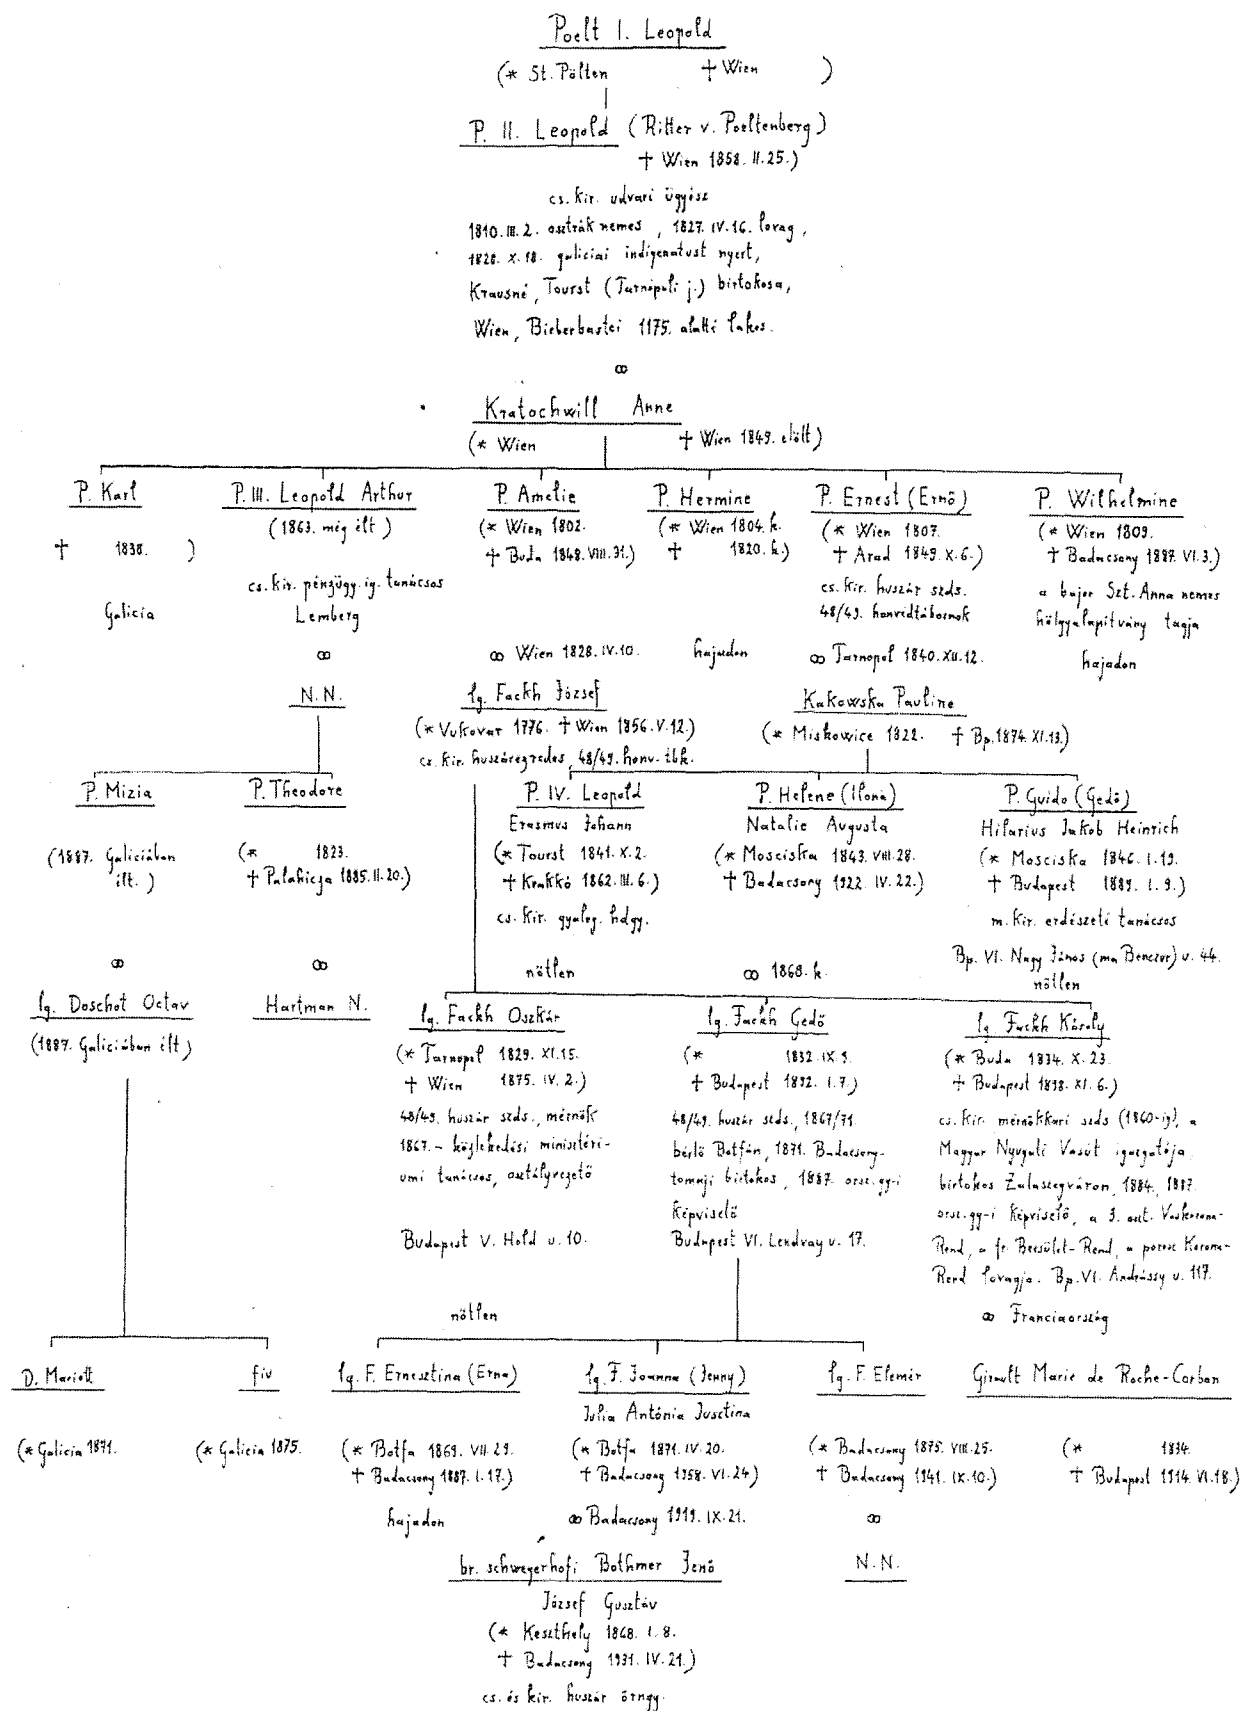 Poelt I. Leopold
(* St. Pölten † Wien )
P. II. Leopold (Ritter v. Poeltenberg)
† Wien 1858. II. 25.)
cs. kir. udvari ügyész
1810. III. 2. osztrák nemes, 1827. IV. 16. lovag,
1828. X. 18. galiciai indigenatust nyert,
Krausné, Tourst (Tarnopoli j.) birtokosa,
Wien, Bieberbastei 1175. alatti lakos.
∞
Kratochwill Anne
(* Wien † Wien 1849. előtt)
P. Karl
† 1838. )
Galicia
P. III. Leopold Arthur
(1863. még élt)
cs. kir. pénzügy. ig. tanácsos
Lemberg
∞
N.N.
P. Amelie
(* Wien 1802.
† Buda 1848. VIII. 31.)
∞ Wien 1828. IV. 10.
lg. Fackh József
(* Vukovar 1776. † Wien 1856. V. 12.)
cs. kir. huszárezredes, 48/49. honv. tbk.
P. Hermine
(* Wien 1804. k.
† 1820. k.)
hajadon
P. Ernest (Ernő)
(* Wien 1807.
† Arad 1849. X. 6.)
cs. kir. huszár szds.
48/49. honvédtábornok
∞ Tarnopol 1840. XII. 12.
Kakowska Pauline
(* Miskowice 1822. † Bp. 1874. XI. 13.)
P. Wilhelmine
(* Wien 1809.
† Badacsony 1887. VI. 3.)
a bajor Szt. Anna nemes
hölgyalapítvány tagja
hajadon
P. Mizia
(1887. Galiciában
élt.)
∞
lg. Doschot Octav
(1887. Galiciában élt)
P. Theodore
(* 1823.
† Palahicza 1885. II. 20.)
∞
Hartman N.
P. IV. Leopold
Erasmus Johann
(* Tourst 1841. X. 2.
† Krakkó 1862. III. 6.)
cs. kir. gyalog. hdgy.
nőtlen
P. Helene (Ilona)
Natalie Augusta
(* Mosciska 1843. VIII. 28.
† Badacsony 1922. IV. 22.)
∞ 1868. k.
P. Guido (Gedő)
Hilarius Jakob Heinrich
(* Mosciska 1846. I. 19.
† Budapest 1889. I. 9.)
m. kir. erdészeti tanácsos
Bp. VI. Nagy János (ma Benczur) u. 44.
nőtlen
lg. Fackh Oszkár
(* Tarnopol 1829. XI. 15.
† Wien 1875. IV. 2.)
48/49. huszár szds., mérnök
1867.- közlekedési minisztéri-
umi tanácsos, osztályvezető
Budapest V. Hold u. 10.
nőtlen
lg. Fackh Gedő
(* 1832. IX. 9.
† Budapest 1892. I. 7.)
48/49. huszár szds., 1867/71.
bérlő Botfán, 1871. Badacsony-
tomaji birtokos, 1887. orsz. gy-i
képviselő
Budapest VI. Lendvay u. 17.
lg. Fackh Károly
(* Buda 1834. X. 23.
† Budapest 1898. XI. 6.)
cs. kir. mérnökkari szds (1860-ig), a
Magyar Nyugati Vasút igazgatója,
birtokos Zalaszegváron, 1884, 1887.
orsz. gy-i képviselő, a 3. oszt. Vaskorona-
Rend, a fr. Becsület-Rend, a porosz Korona-
Rend lovagja. Bp. VI. Andrássy u. 117.
∞ Franciaország
Girault Marie de Roche-Corban
(* 1834.
† Budapest 1914. VI. 18.)
D. Mariett
(* Galicia 1871.
fiú
(* Galicia 1875.
lg. F. Ernesztina (Erna)
(* Botfa 1869. VII. 29.
† Badacsony 1887. I. 17.)
hajadon
lg. F. Joanna (Jenny)
Julia Antónia Jusztina
(* Botfa 1871. IV. 20.
† Badacsony 1958. VI. 24.)
∞ Badacsony 1919. IX. 21.
br. schwegerhofi Bothmer Jenő
József Gusztáv
(* Keszthely 1868. I. 8.
† Badacsony 1931. IV. 21.)
cs. és kir. huszár őrngy.
lg. F. Elemér
(* Badacsony 1875. VIII. 25.
† Badacsony 1941. IX. 10.)
∞
N.N.